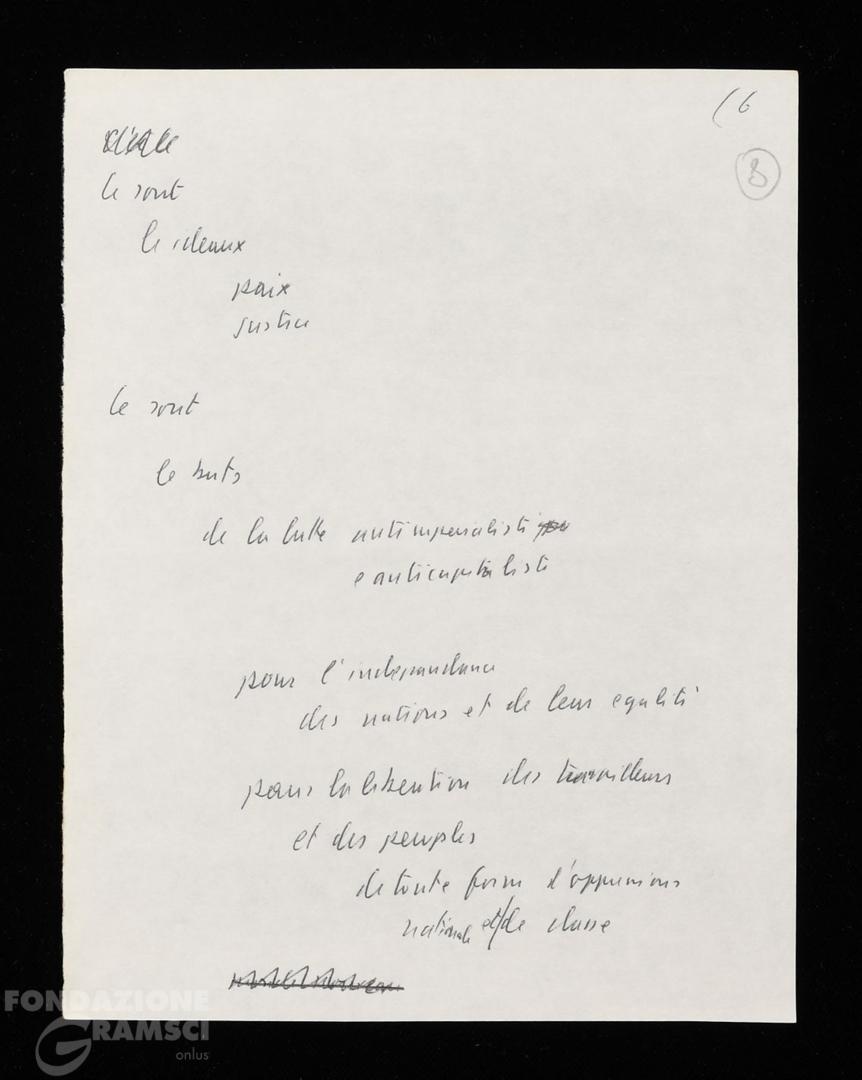 ( 6
8
Ce sont
le ideaux
paix
justice
Ce sont
le buts
de la lutte antimperialiste
e anticapitaliste
pour l'independance
des nations et de leur egalité
pour la liberation des travailleurs
et des peuples
de toute form d'oppressions
nationale et/de classe
FONDAZIONE
GRAMSCI
onlus